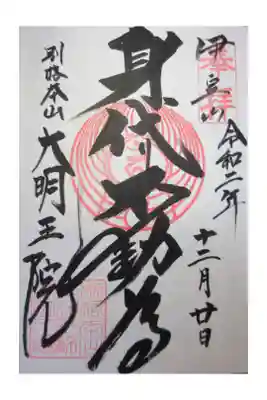 奉拝
伊豆山
令和二年
十二月廿日
身代不動尊
別格本山
大明王院